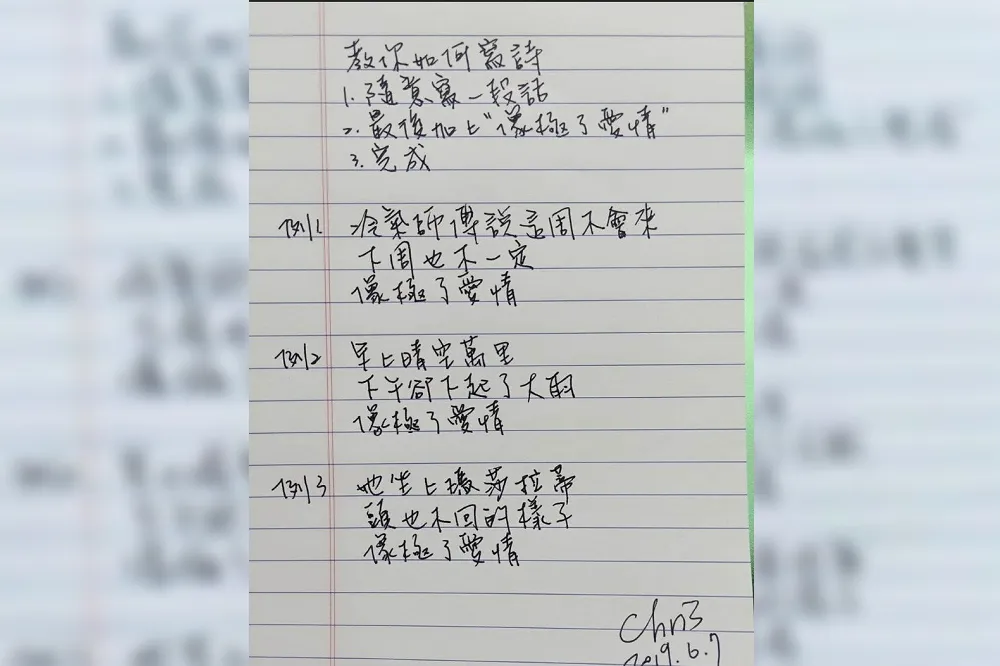 教你如何寫詩
1. 隨意寫一段話
2. 最後加上"像極了愛情"
3. 完成
例1 冷氣師傅說這周不會來
下周也不一定
像極了愛情
例2 早上晴空萬里
下午卻下起了大雨
像極了愛情
例3 她坐上瑪莎拉蒂
頭也不回的樣子
像極了愛情
Chn3
2019.6.7